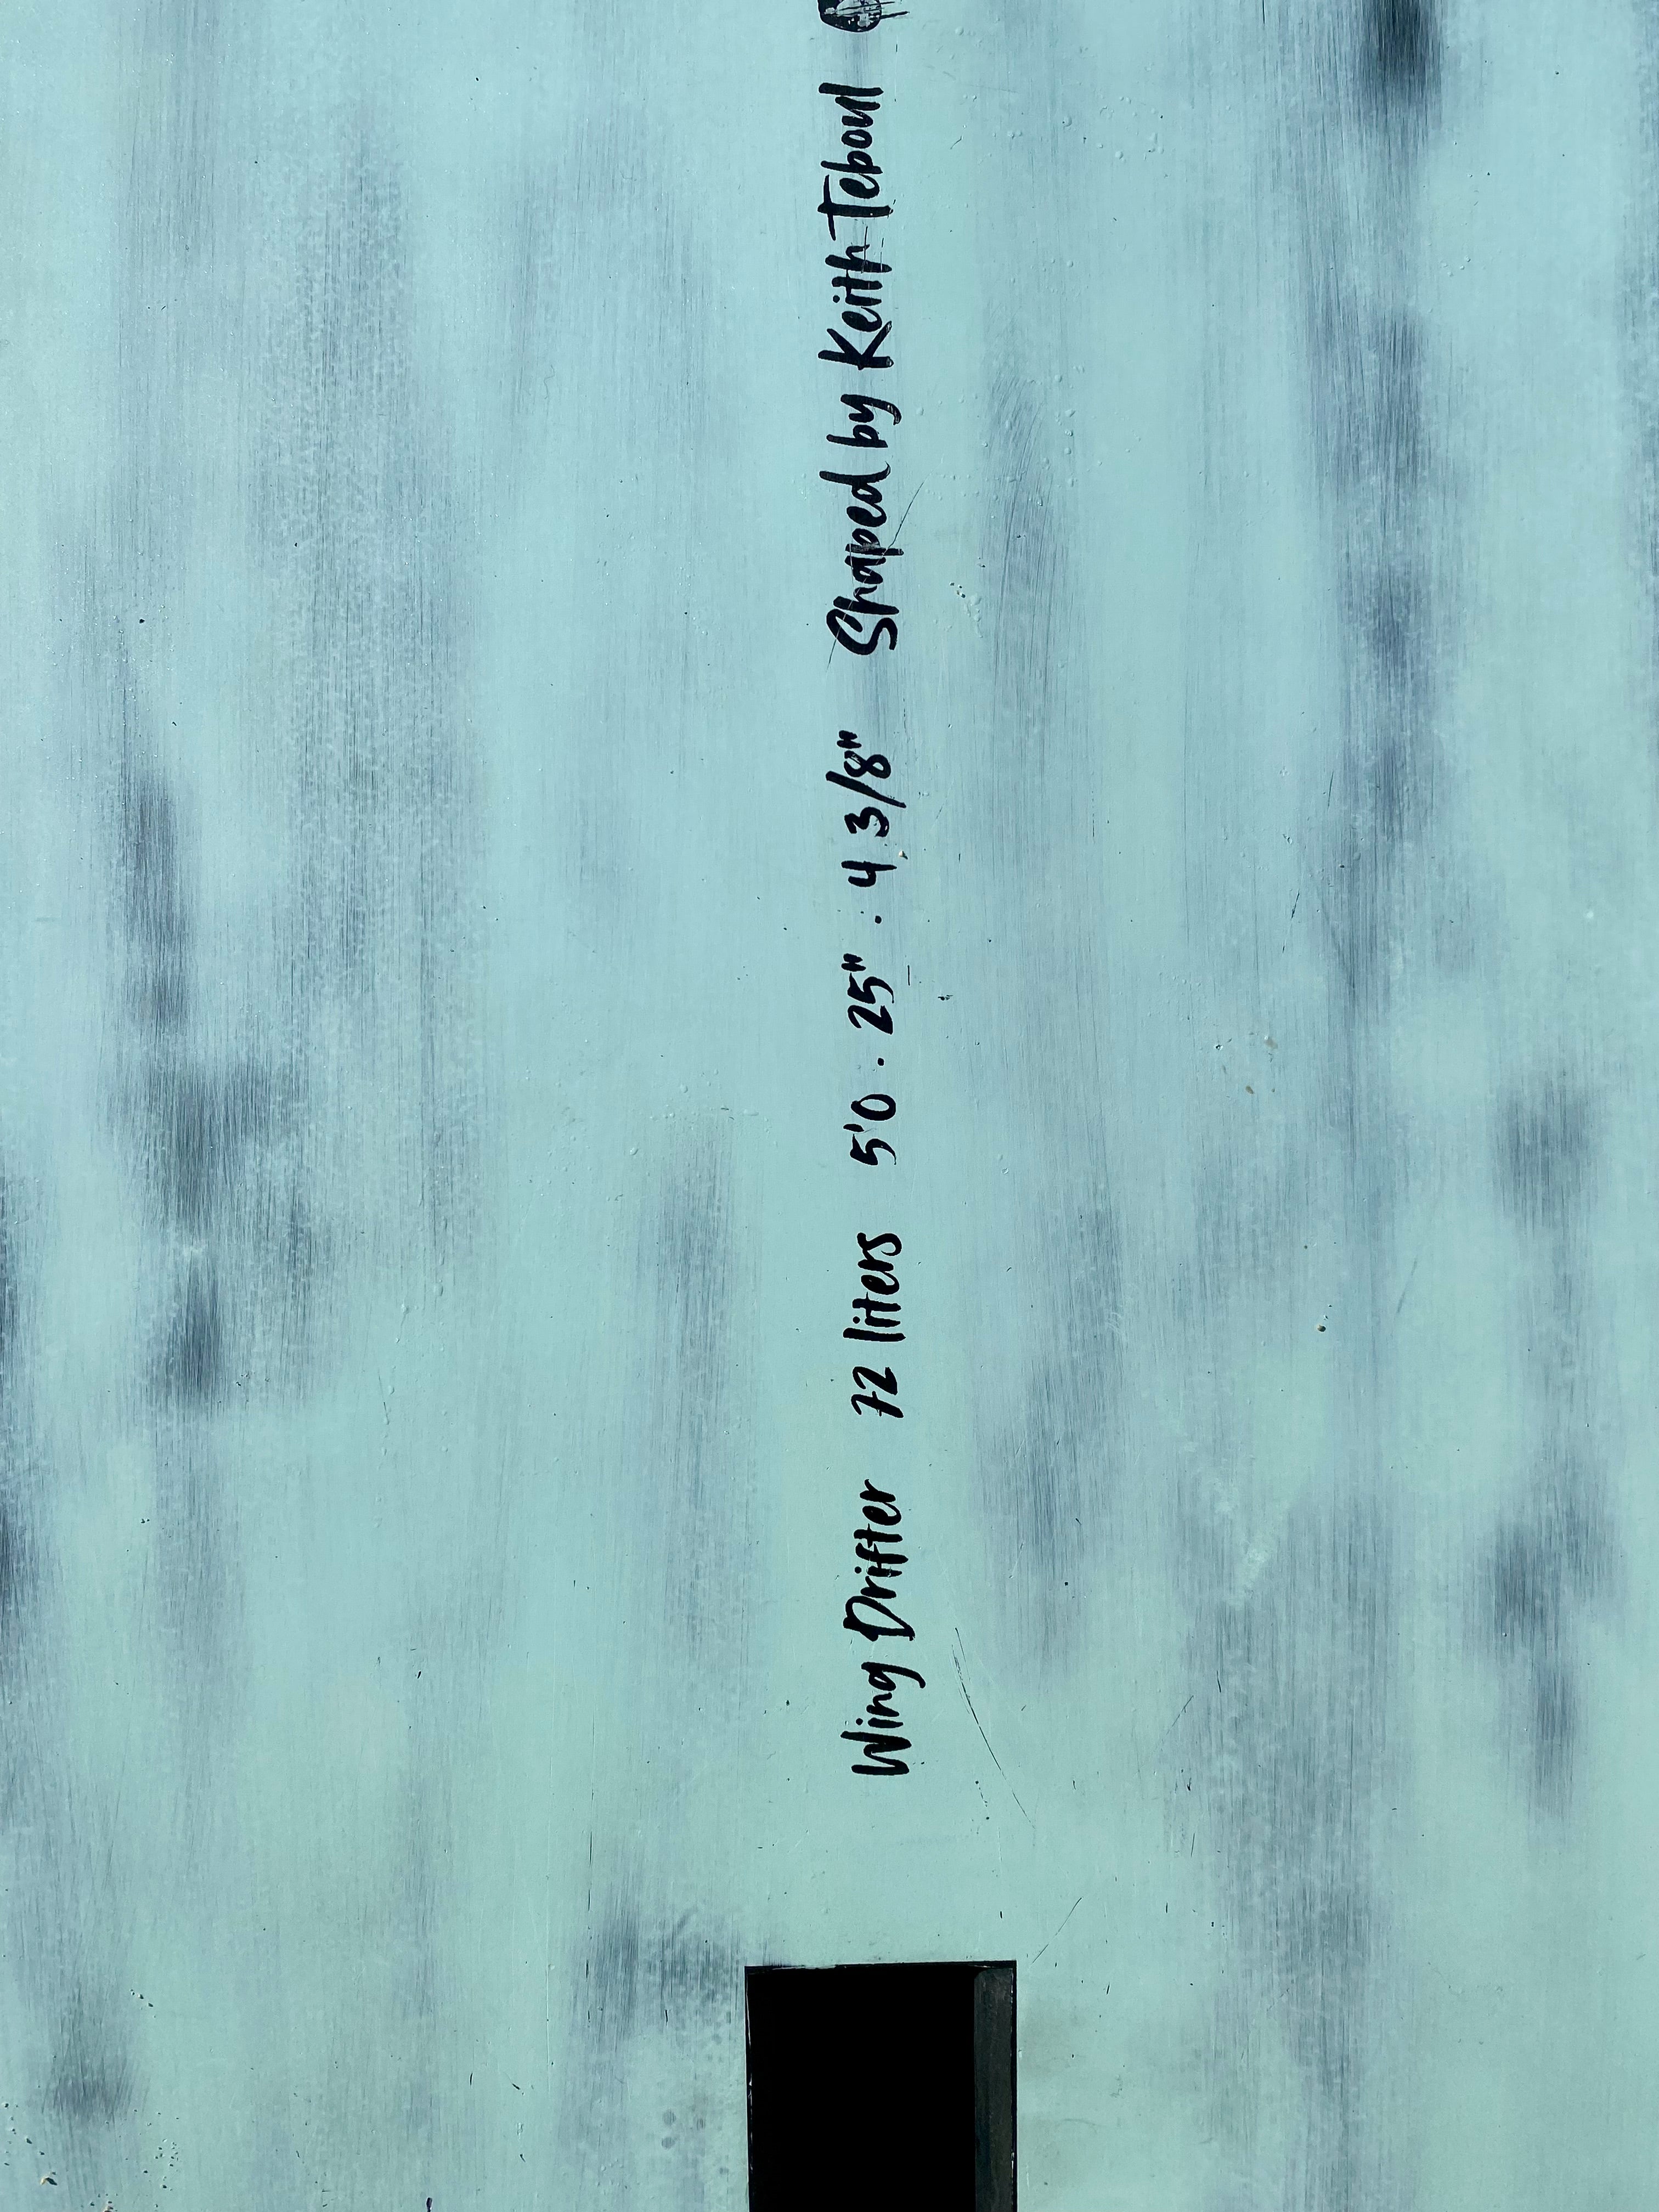 Wing Drifter 72 liters 5'0 . 25" . 4 3/8" Shaped by Keith Teboul